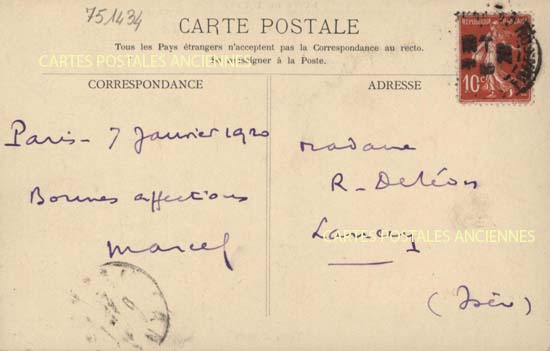 751434
CARTE POSTALE
Tous les Pays étrangers n'acceptent pas la Correspondance au recto.
Se renseigner à la Poste.
CARTES POSTALES ANCIENNES
CORRESPONDANCE
ADRESSE
REPUBLIQUE
10c
Paris - 7 Janvier 1920
Bonnes affections
Marcel
Madame
R. Deléon
Lancey
CARTES POSTALES ANCIENNES
(Isère)